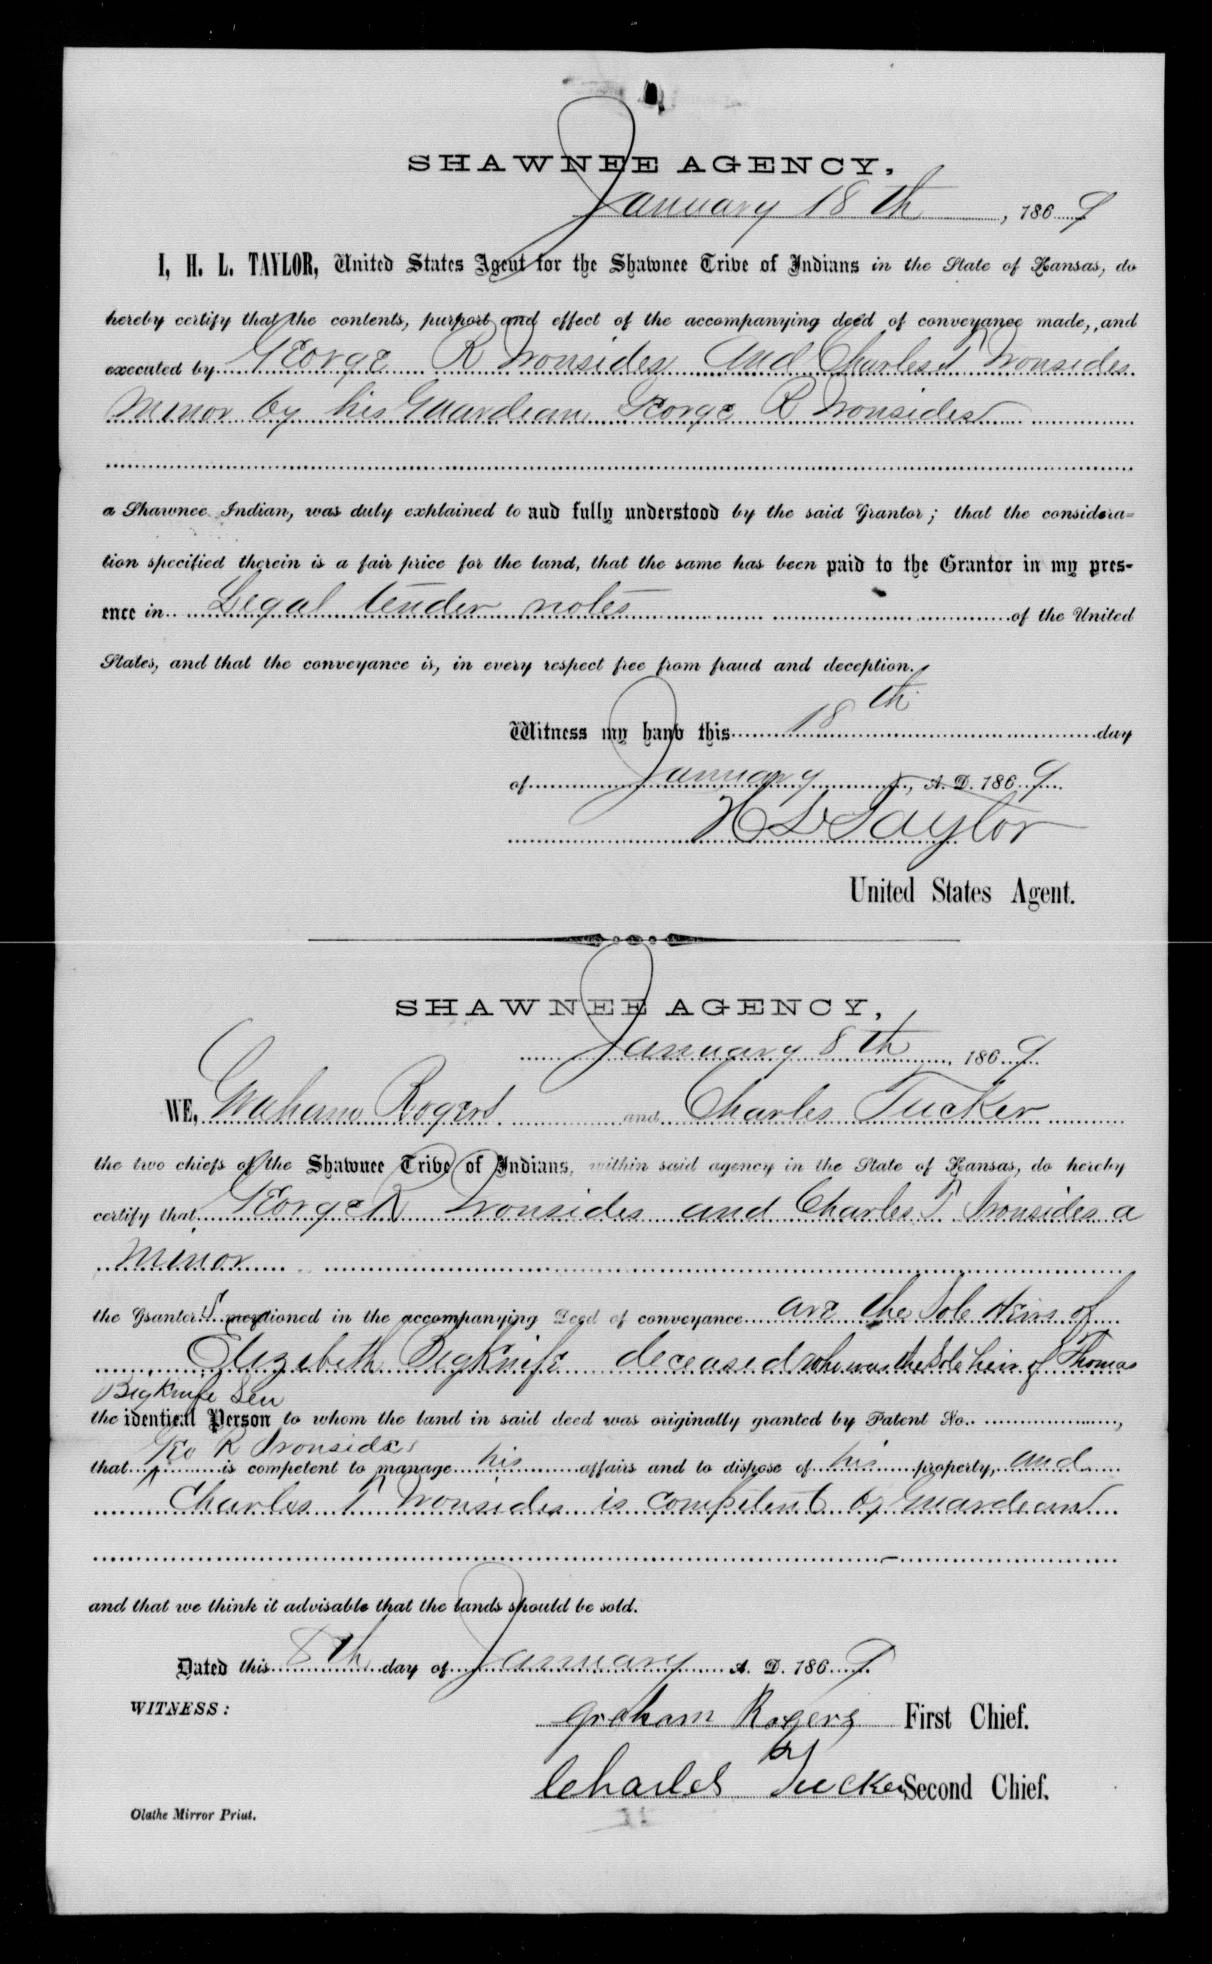 SHAWNEE AGENCY,
January 18th, 1869
I, H. L. TAYLOR, United States Agent for the Shawnee Tribe of Indians in the State of Kansas, do
hereby certify that the contents, purport and effect of the accompanying deed of conveyance made, and
executed by George R Ironsides and Charles T Ironsides
Minor by his Guardian George R Ironsides
a Shawnee Indian, was duly explained to and fully understood by the said Grantor; that the considera=
tion specified therein is a fair price for the land, that the same has been paid to the Grantor in my pres-
ence in Legal tender notes of the United
States, and that the conveyance is, in every respect free from fraud and deception.
Witness my hand this 18th day
of January, A. D. 1869
H L Taylor
United States Agent.
SHAWNEE AGENCY,
January 8th, 1869
WE, Graham Rogers and Charles Tucker
the two chiefs of the Shawnee Tribe of Indians, within said agency in the State of Kansas, do hereby
certify that George R Ironsides and Charles T Ironsides a
Minor
the Grantors mentioned in the accompanying Deed of conveyance are the Sole Heirs of
Elizabeth BigKnife deceased who was the Sole heir of Thomas
BigKnife Sen
the identical Person to whom the land in said deed was originally granted by Patent No. ,
Geo R Ironsides
that is competent to manage his affairs and to dispose of his property, and
Charles T Ironsides is competent by Guardean
and that we think it advisable that the lands should be sold.
Dated this 8th day of January A. D. 1869.
WITNESS:
Graham Rogers First Chief.
Charles Tucker Second Chief.
Olathe Mirror Print.